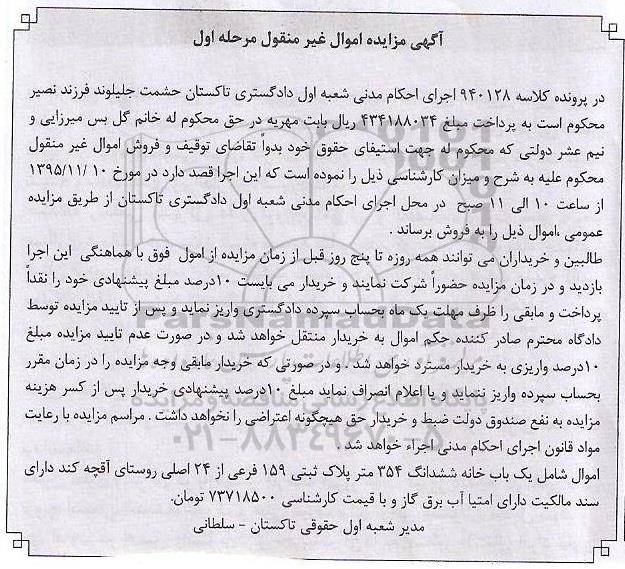 آگهی مزایده اموال غیر منقول مرحله اول
در پرونده کلاسه ۹۴۰۱۲۸ اجرای احکام مدنی شعبه اول دادگستری تاکستان حشمت جلیلوند فرزند نصیر
محکوم است به پرداخت مبلغ ۴۳۴۱۸۸۰۳۴ ریال بابت مهریه در حق محکوم له خانم گل بس میرزایی و
نیم عشر دولتی که محکوم له جهت استیفای حقوق خود بدواً تقاضای توقیف و فروش اموال غیر منقول
محکوم علیه به شرح و میزان کارشناسی ذیل را نموده است که این اجرا قصد دارد در مورخ ۱۰ /۱۳۹۵/۱۱
از ساعت ۱۰ الی ۱۱ صبح در محل اجرای احکام مدنی شعبه اول دادگستری تاکستان از طریق مزایده
عمومی ،اموال ذیل را به فروش برساند .
طالبین و خریداران می توانند همه روزه تا پنج روز قبل از زمان مزایده از امول فوق با هماهنگی این اجرا
بازدید و در زمان مزایده حضوراً شرکت نمایند و خریدار می بایست ۱۰درصد مبلغ پیشنهادی خود را نقداً
پرداخت و مابقی را ظرف مهلت یک ماه بحساب سپرده دادگستری واریز نماید و پس از تایید مزایده توسط
دادگاه محترم صادر کننده حکم اموال به خریدار منتقل خواهد شد و در صورت عدم تایید مزایده مبلغ
۱۰درصد واریزی به خریدار مسترد خواهد شد . و در صورتی که خریدار مابقی وجه مزایده را در زمان مقرر
بحساب سپرده واریز ننماید و یا اعلام انصراف نماید مبلغ ۱۰درصد پیشنهادی خریدار پس از کسر هزینه
مزایده به نفع صندوق دولت ضبط و خریدار حق هیچگونه اعتراضی را نخواهد داشت . مراسم مزایده با رعایت
مواد قانون اجرای احکام مدنی اجراء خواهد شد .
اموال شامل یک باب خانه ششدانگ ۳۵۴ متر پلاک ثبتی ۱۵۹ فرعی از ۲۴ اصلی روستای آقچه کند دارای
سند مالکیت دارای امتیا آب برق گاز و با قیمت کارشناسی ۷۳۷۱۸۵۰۰ تومان.
مدیر شعبه اول حقوقی تاکستان - سلطانی
ParsNamadData